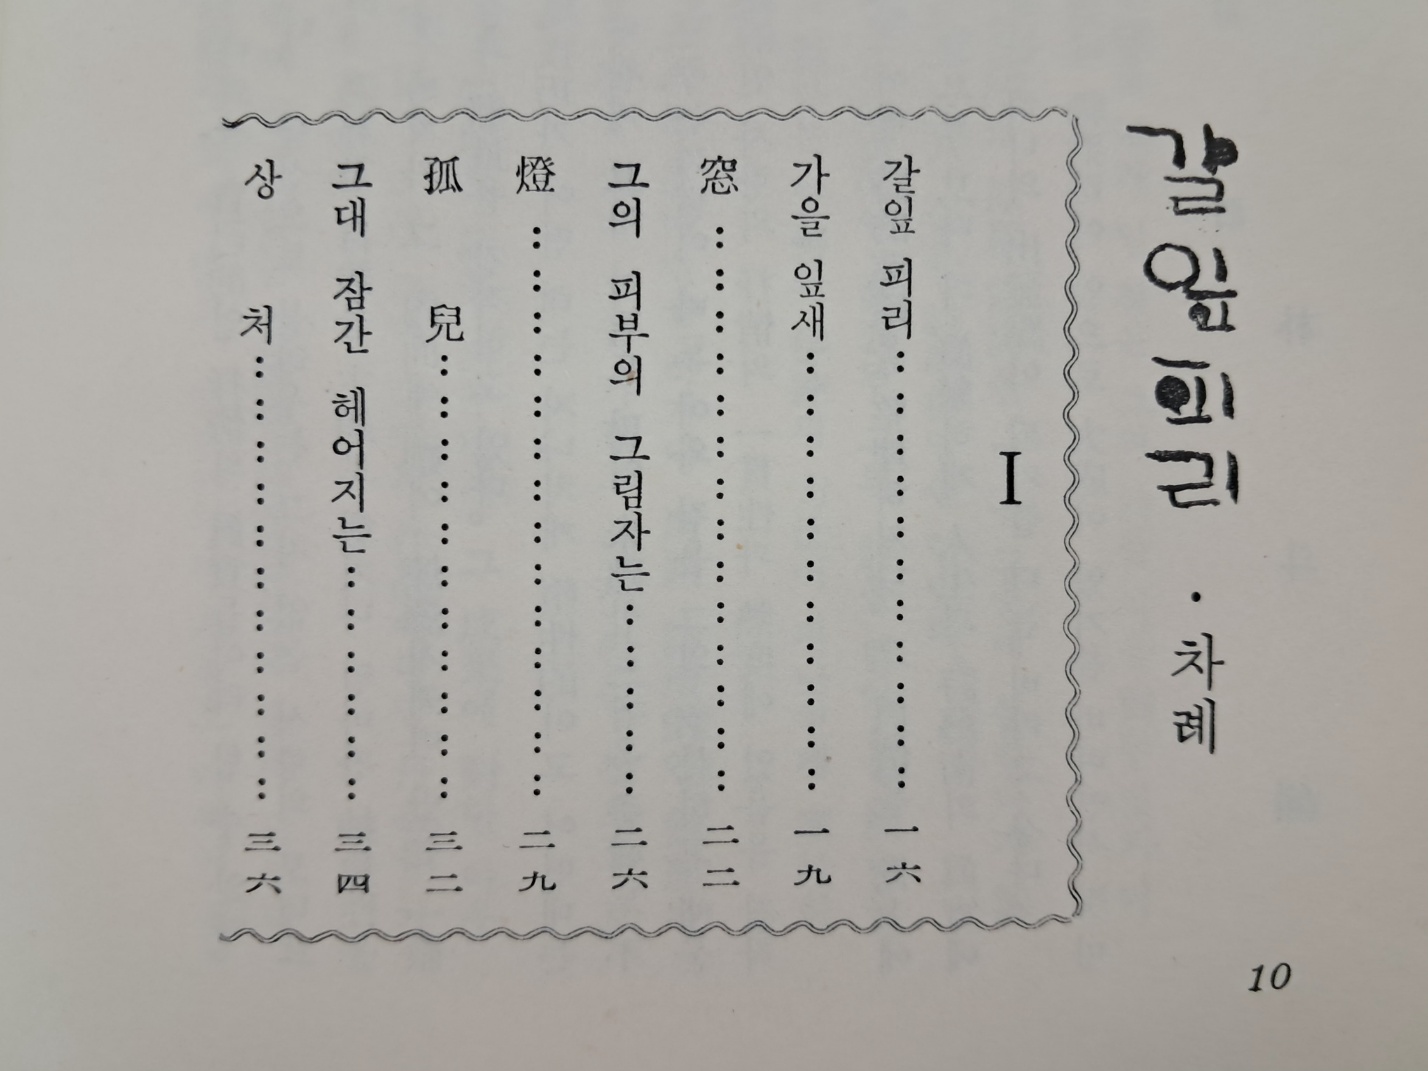 갈잎피리 · 차례
I
갈잎 피리……………………一六
가을 잎새……………………一九
窓……………………二二
그의 피부의 그림자는……………………二六
燈……………………二九
孤 兒……………………三二
그대 잠간 헤어지는……………………三四
상 처……………………三六
10